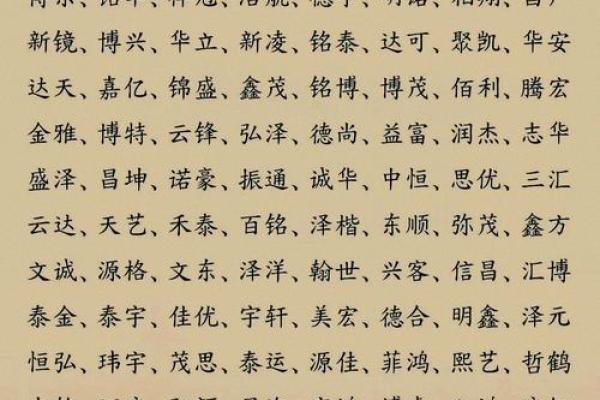 新镜、博兴、华立、新凌、铭泰、达可、聚凯、华安
达天、嘉亿、锦盛、鑫茂、铭博、博茂、佰利、腾宏
金雅、博特、云锋、弘泽、德尚、益富、润杰、志华
盛泽、昌坤、诺豪、振通、诚华、中恒、思优、三汇
云达、天艺、禾泰、百铭、泽楷、东顺、弥茂、鑫方
文诚、源格、文东、泽洋、翰世、兴客、信昌、汇博
泰金、泰宇、佳优、宇轩、美宏、德合、明鑫、泽元
恒弘、玮宇、茂思、泰运、源佳、菲鸿、熙艺、哲鹤